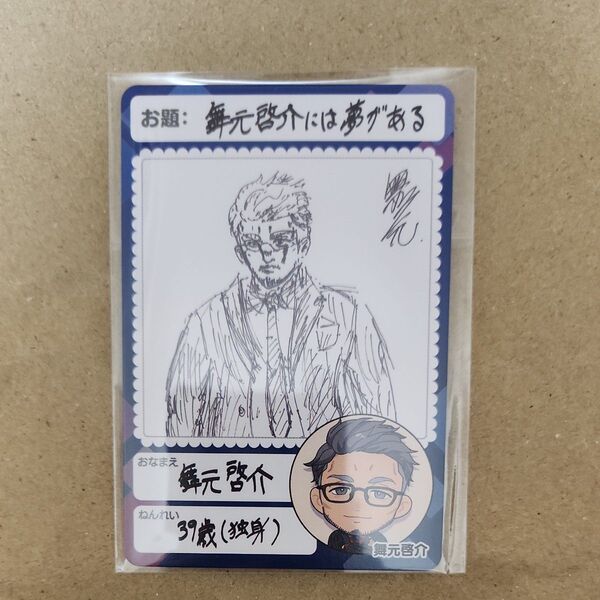 お題: 舞元啓介には夢がある
舞元.
おなまえ
舞元啓介
ねんれい
39歳(独身)
舞元啓介